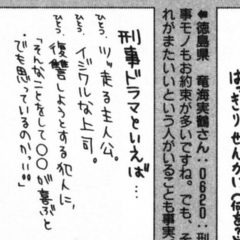 はっきりせんかい
◀徳島県　竜海実鶴さん：0620：刑
事モノもお約束が多いですね。でも、そ
れがまたいいという人がいることも事実
刑事ドラマといえば…
ひとつ、ツッ走る主人公。
ひとつ、イジワルな上司。
ひとつ、復讐しようとする犯人に、
「そんなことをして〇〇が喜ぶと
でも思っているのか!!」